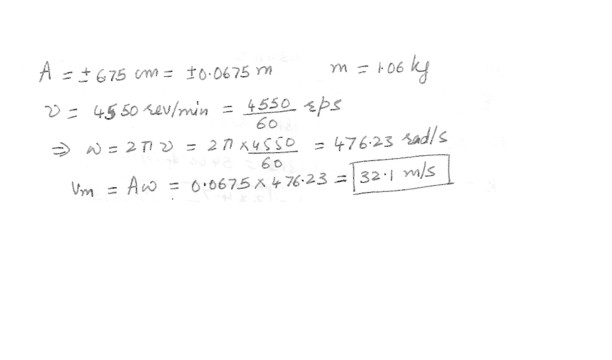 A = ±6.75 cm = ±0.0675 m m = 1.06 kg
ν = 4550 rev/min = 4550/60 rps
⇒ ω = 2πν = 2π × 4550/60 = 476.23 rad/s
Vm = Aω = 0.0675 × 476.23 = 32.1 m/s